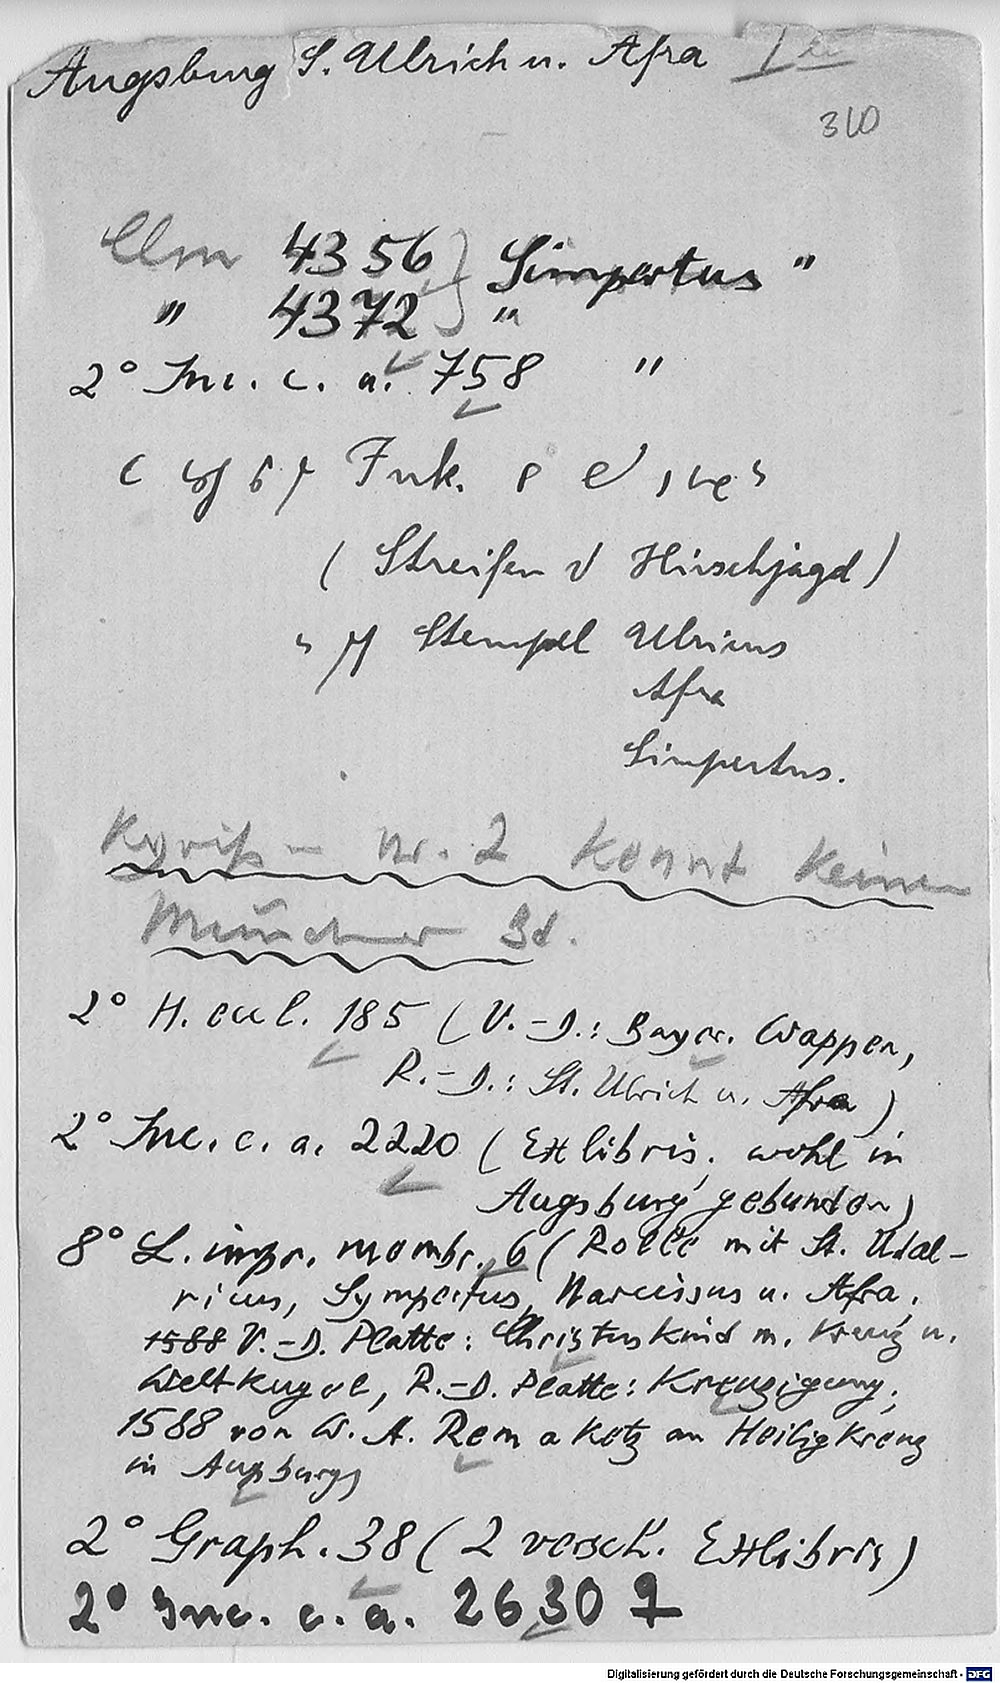 Augsburg S. Ulrich u. Afra
310
Clm 4356 } Simpertus "
" 4372 } "
2° Inc. c. a. 758 "
Ink.
(Streifen Hirschjagd)
Stempel Ulricus
Afra
Simpertus.
Kyriß - Nr. 2 kennt keinen
Münchner Bd.
2° H. eccl. 185 (V.-D.: Bayer. Wappen,
R.-D.: St. Ulrich u. Afra)
2° Inc. c. a. 2220 (Exlibris, wohl in
Augsburg gebunden)
8° L. impr. membr. 6 (Rolle mit St. Udal-
ricus, Sympertus, Narcissus u. Afra.
1588 V.-D. Platte: Christuskind m. Kreuz u.
Weltkugel, R.-D. Platte: Kreuzigung,
1588 von W. A. Rem a Ketz an Heiligkreuz
in Augsburg)
2° Graph. 38 (2 versch. Exlibris)
2° Inc. c. a. 2630
Digitalisierung gefördert durch die Deutsche Forschungsgemeinschaft - DFG